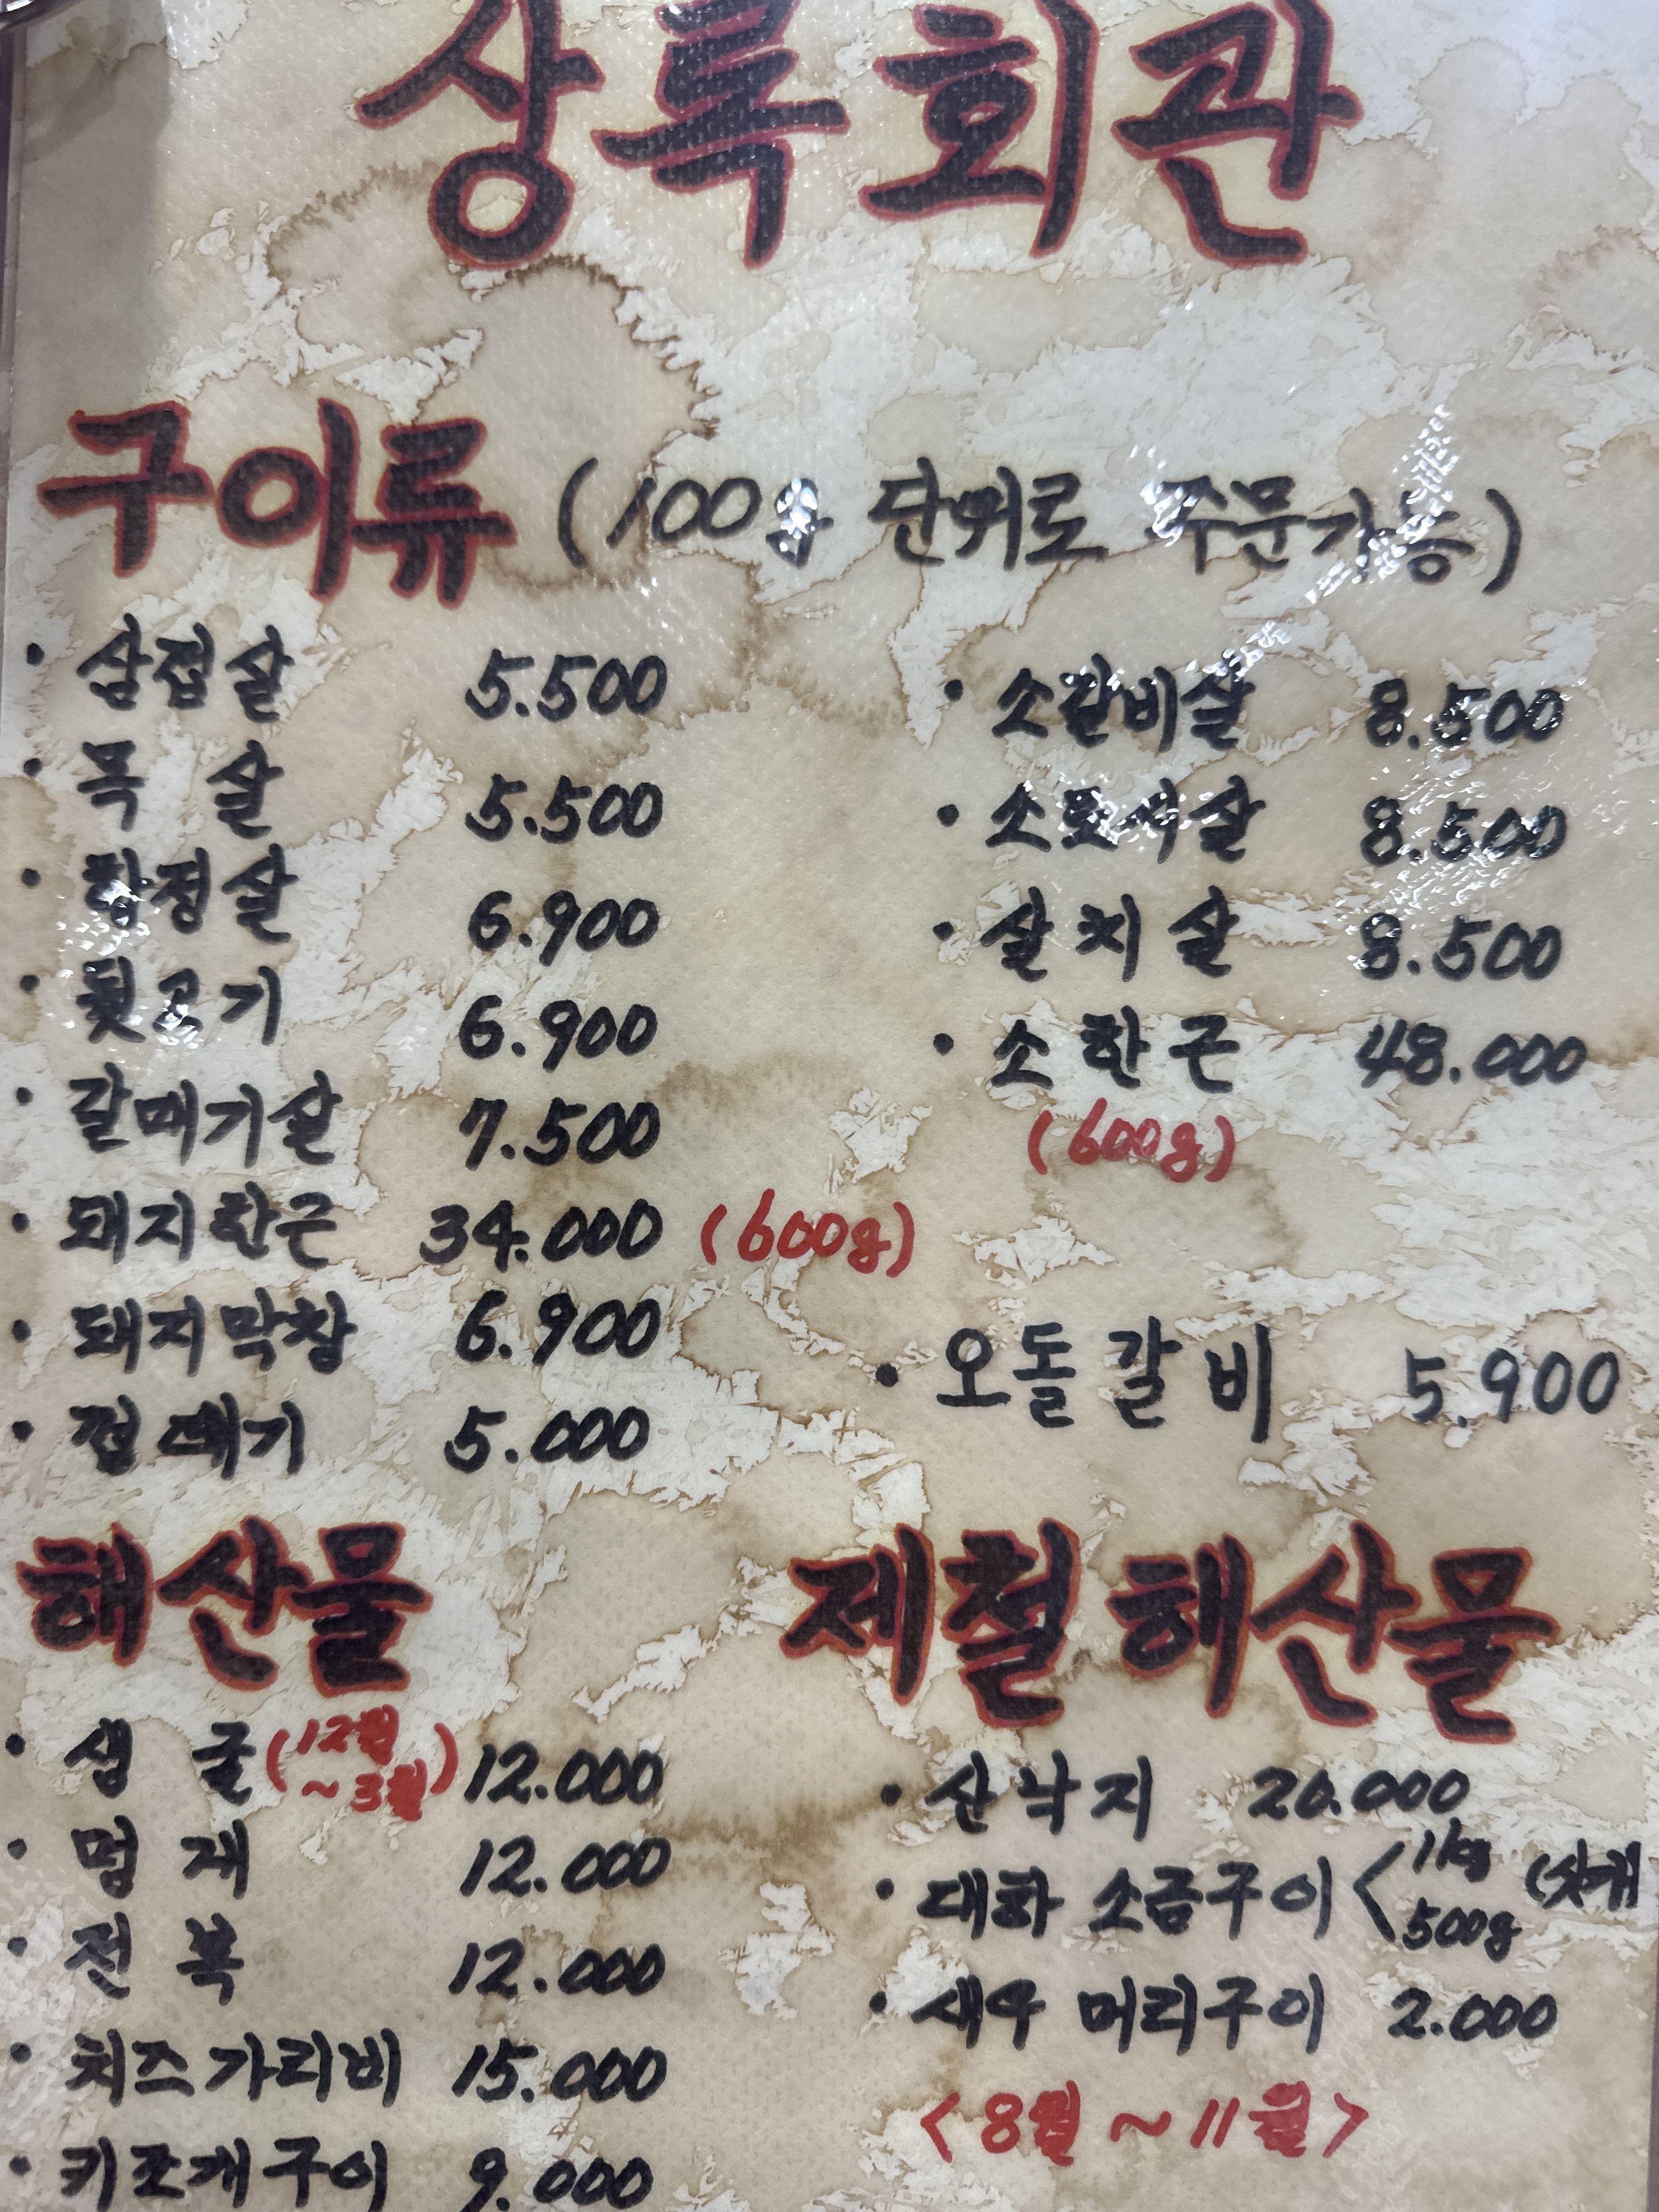 상록회관
구이류 (100g 단위로 주문가능)
· 삼겹살 5.500
· 목살 5.500
· 항정살 6.900
· 뒷고기 6.900
· 갈매기살 7.500
· 돼지한근 34.000 (600g)
· 돼지막창 6.900
· 껍데기 5.000
· 소갈비살 8.500
· 소토시살 8.500
· 살치살 8.500
· 소한근 48.000
(600g)
· 오돌갈비 5.900
해산물
· 생굴 (12월 ~3월) 12.000
· 멍게 12.000
· 전복 12.000
· 치즈가리비 15.000
· 키조개구이 9.000
제철해산물
· 산낙지 20.000
· 대하 소금구이 < 1kg
500g
· 새우 머리구이 2.000
<8월 ~ 11월>